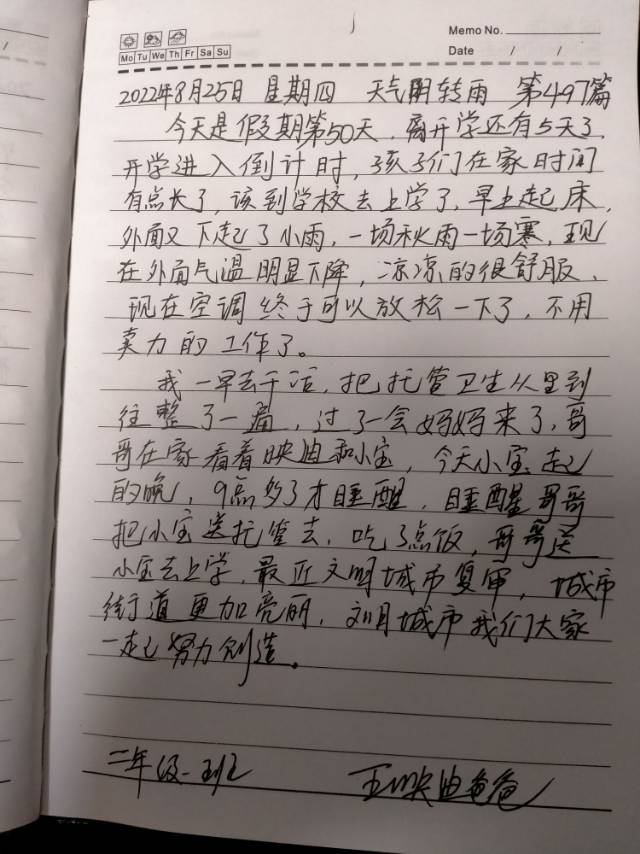 Memo No.
Mo Tu We Th Fr Sa Su
Date / /
2022年8月25日 星期四 天气阴转雨 第497篇
今天是假期第50天，离开学还有5天了，
开学进入倒计时，孩子们在家时间
有点长了，该到学校去上学了，早上起床，
外面又下起了小雨，一场秋雨一场寒，现
在外面气温明显下降，凉凉的很舒服，
现在空调终于可以放松一下了，不用
卖力的工作了。
我一早去干活，把托管卫生从里到
往整了一遍，过了一会妈妈来了，哥
哥在家看着映迪和小宝，今天小宝起
的晚，9点多了才睡醒，睡醒哥哥
把小宝送托管去，吃了点饭，哥哥送
小宝去上学，最近文明城市复审，城市
街道更加亮丽，文明城市我们大家
一起努力创造。
二年级一班 王映迪爸爸